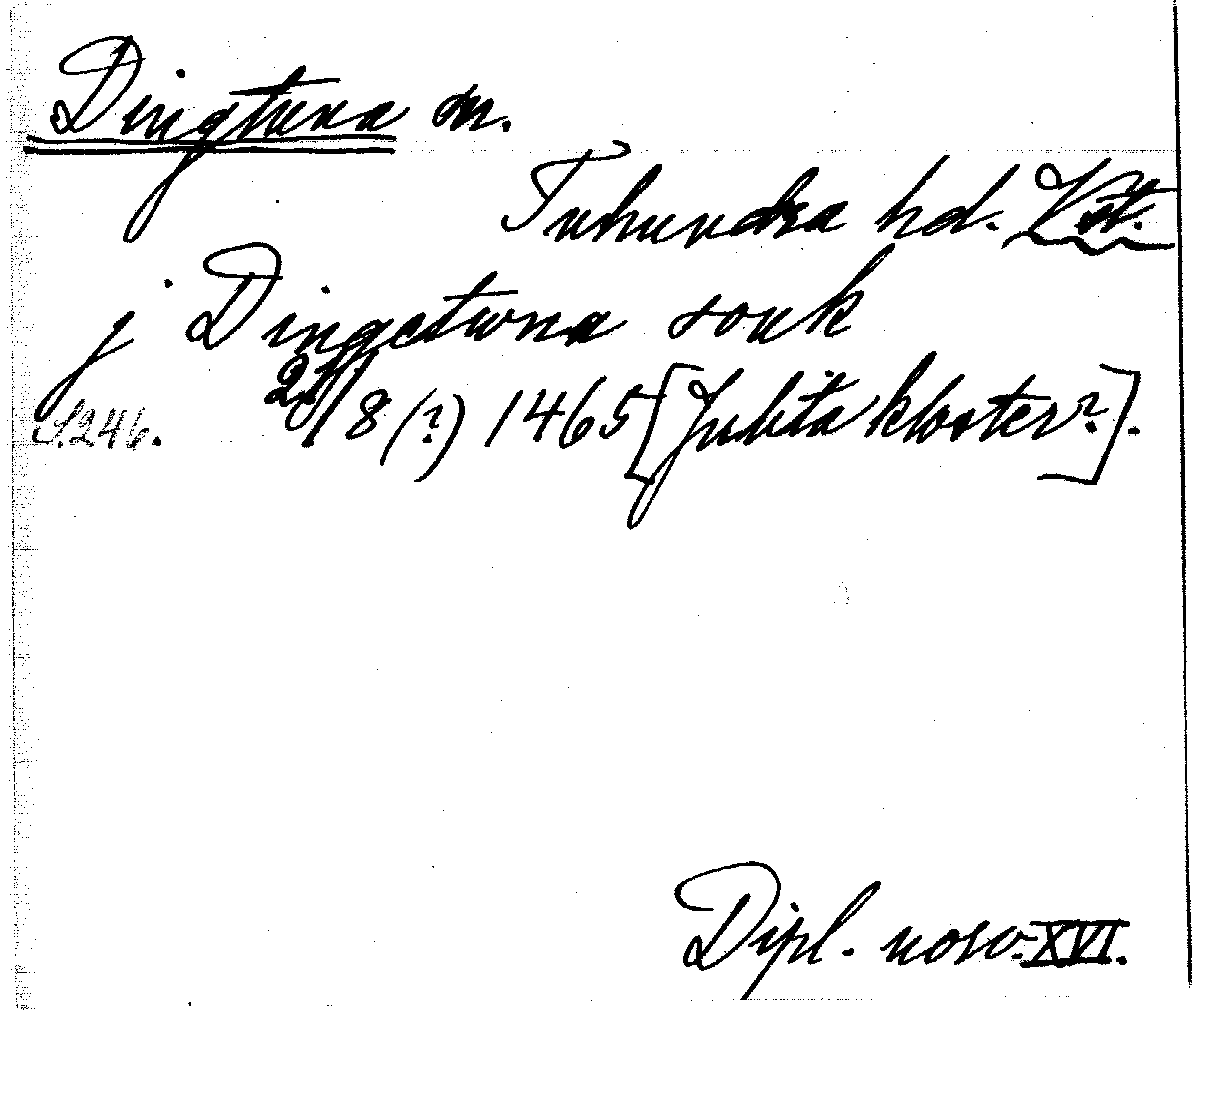 Dingtuna sn.
Tuhundra hd. Vstm.
j Dingatwna sonk
21/8 (?) 1465 [Julita kloster?].
S. 246.
Dipl. norv. XVI.